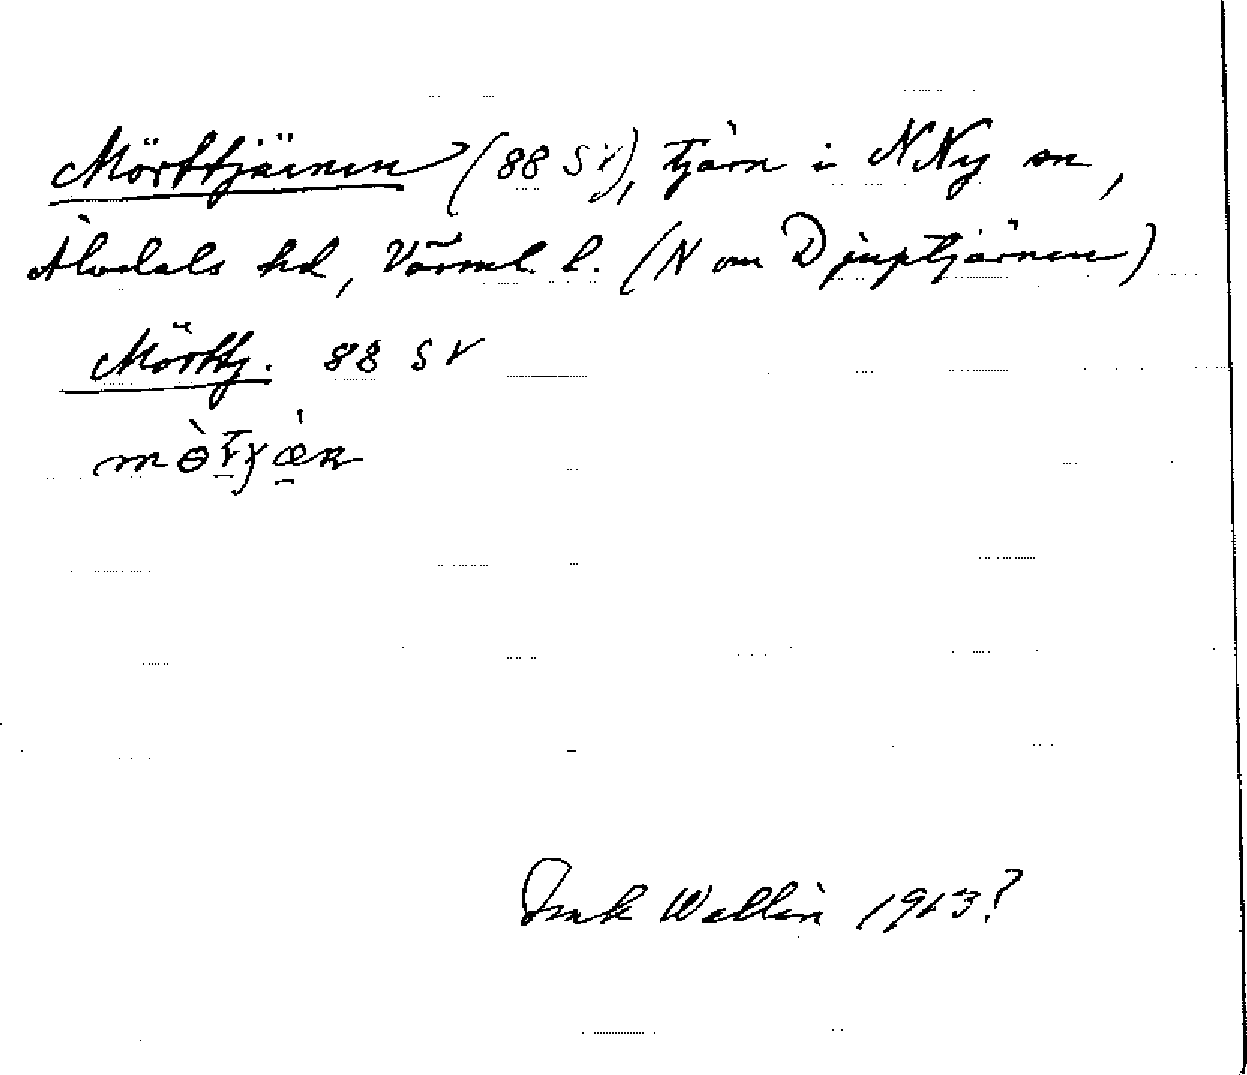 Mörttjärnen (88 SV), tjärn i N Ny sn,
Älvdals hd, Värml. l. (N om Djuptjärnen)
Mörttj. 88 SV
Wallin 1913?